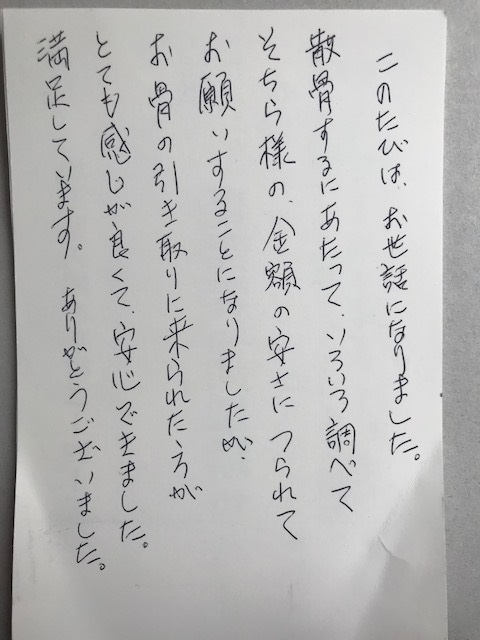 このたびは、お世話になりました。
散骨するにあたって、いろいろ調べて
そちら様の、金額の安さにつられて
お願いすることになりましたが、
お骨の引き取りに来られたかたが
とても感じが良くて、安心できました。
満足しています。 ありがとうございました。